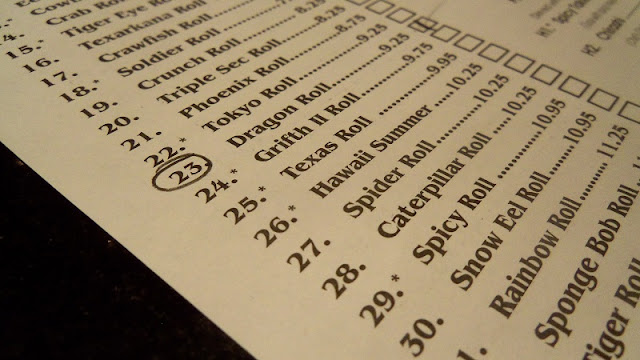 Crab
15.* Tiger Eye Roll
16. Texarkana Roll
17. Crawfish Roll
18.* Soldier Roll
19. Crunch Roll
20. Triple Sec Roll 8.25
21. Phoenix Roll 8.75
22.* Tokyo Roll 9.25
23. Dragon Roll 9.25
24.* Grifth II Roll 9.75
25.* Texas Roll 9.95
26.* Hawaii Summer 10.25
27. Spider Roll 10.25
28. Caterpillar Roll 10.25
29.* Spicy Roll 10.95
30. Snow Eel Roll 10.95
Rainbow Roll 11.25
Sponge Bob Roll
Roll
H1.
H2.